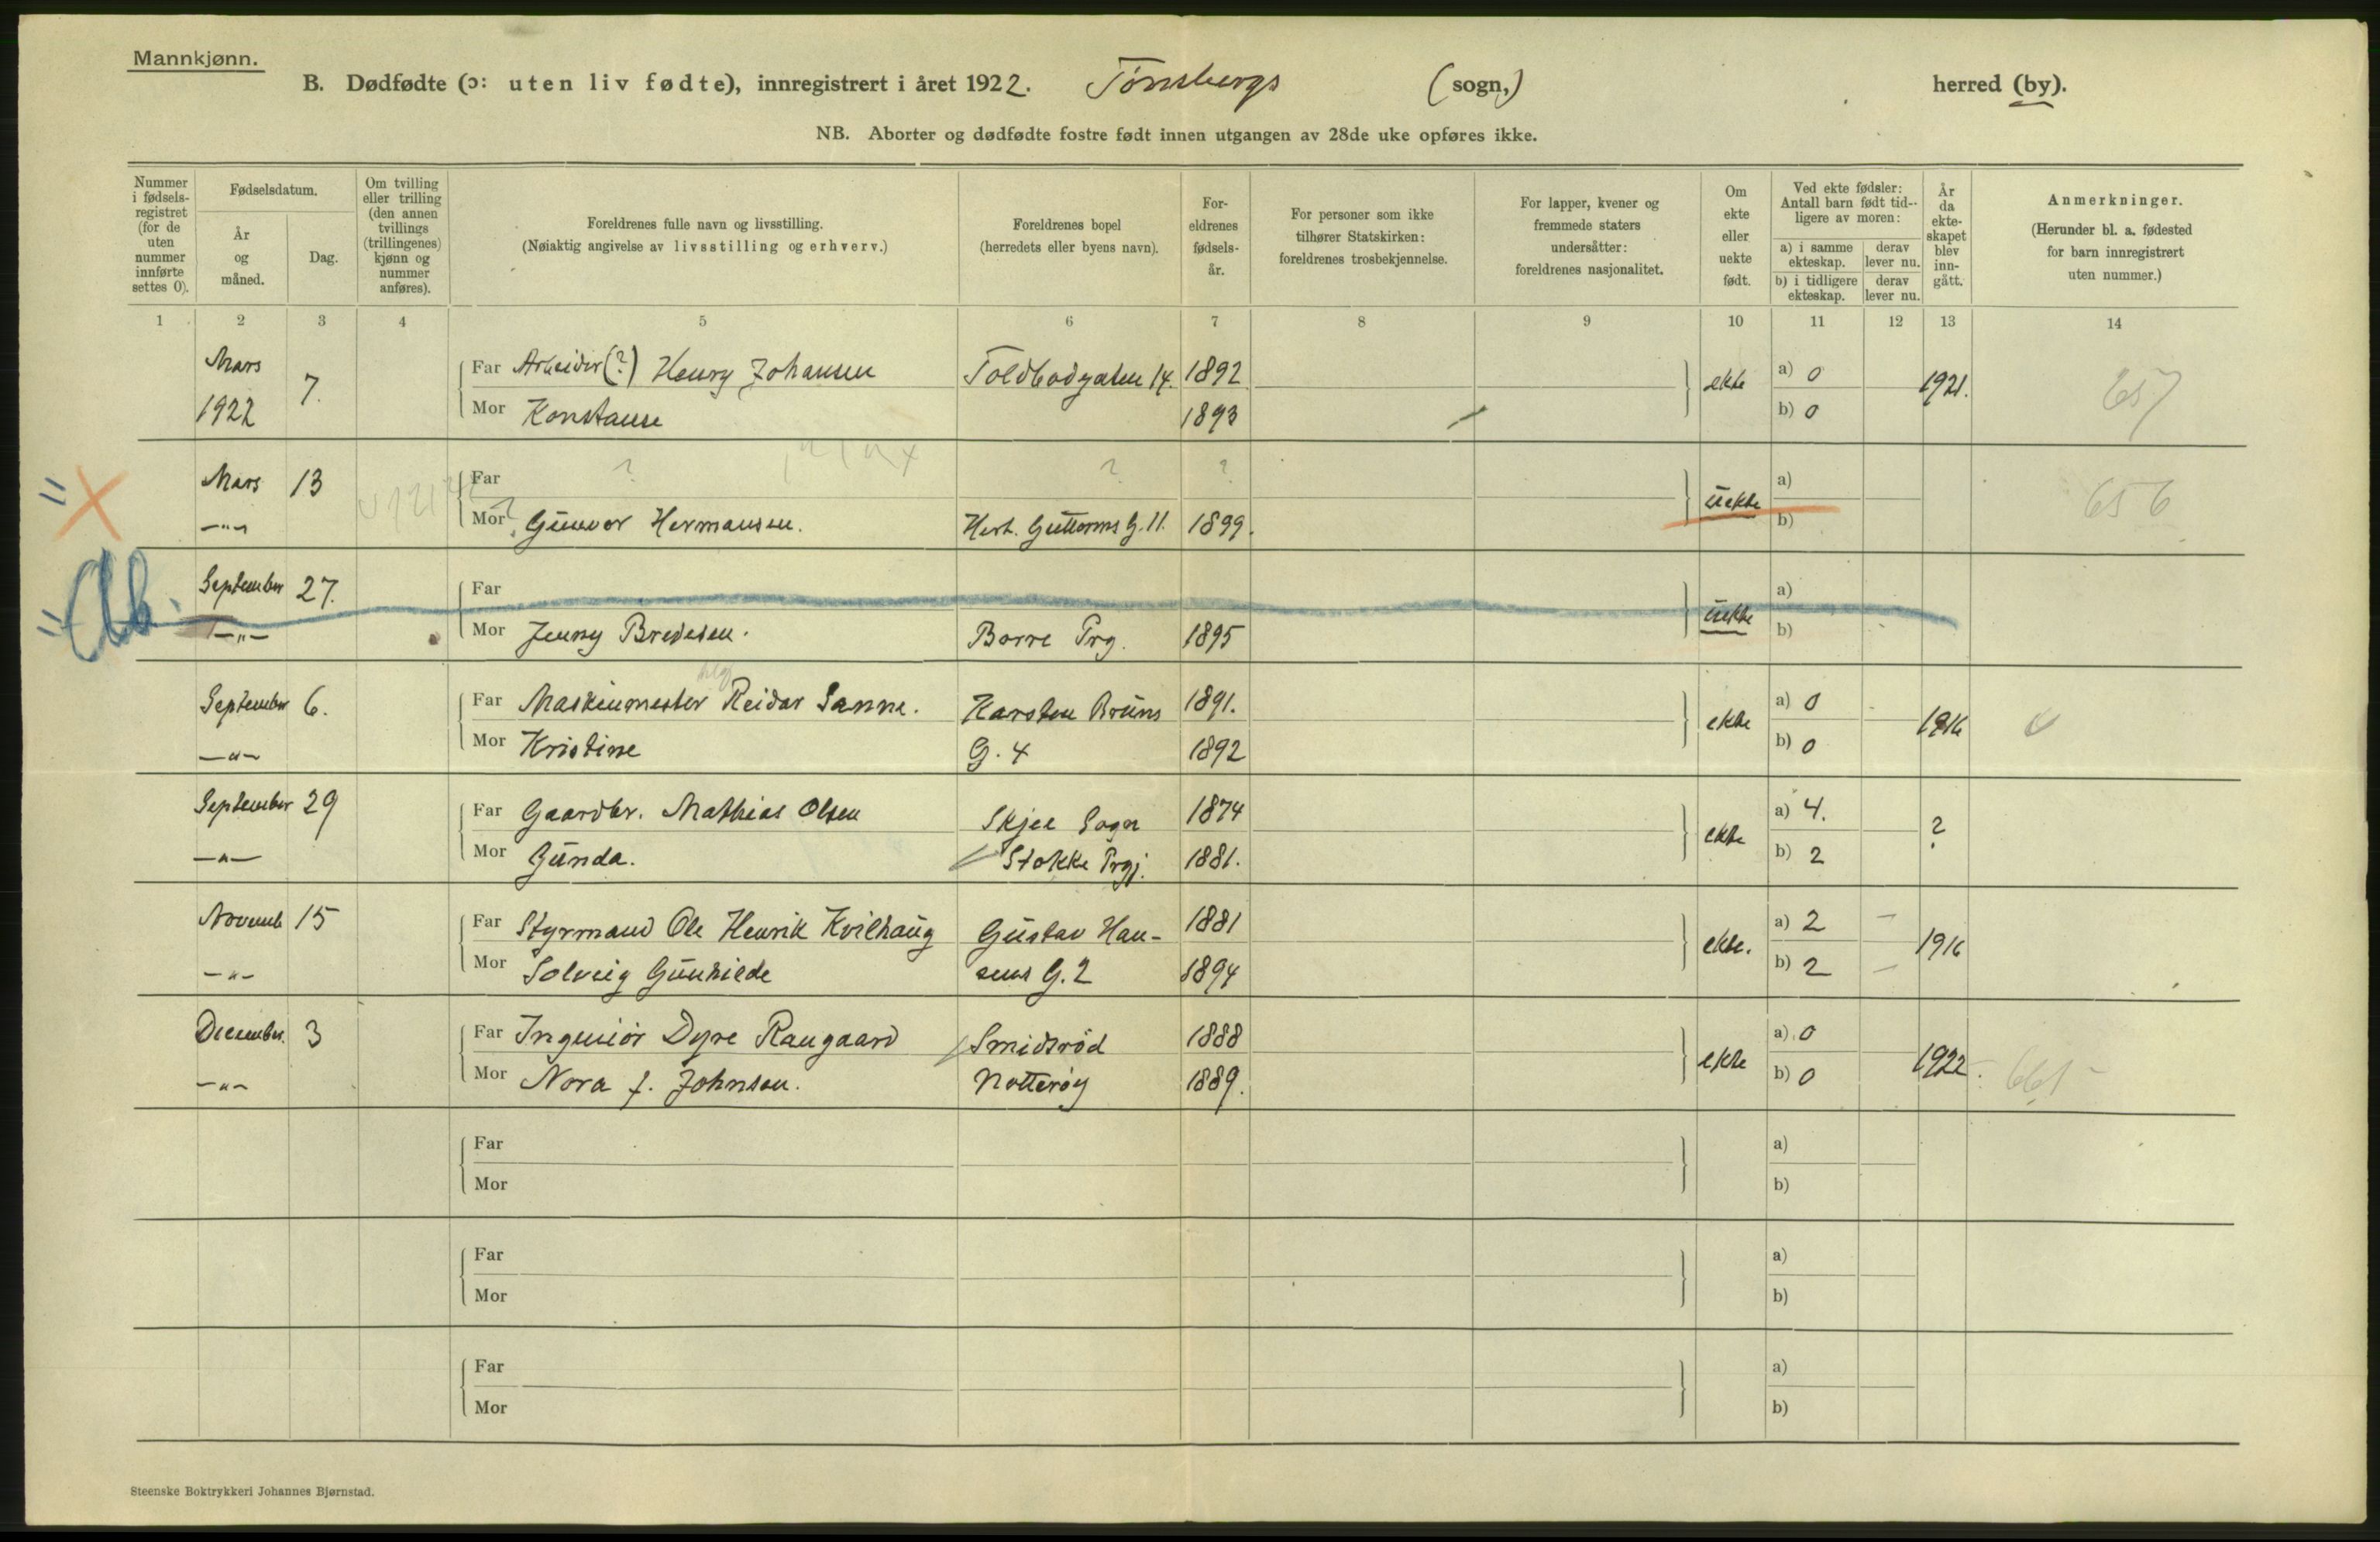 Mannkjønn.
B. Dødfødte (ɔ: uten liv fødte), innregistrert i året 1922. Tönsbergs (sogn,) herred (by).
NB. Aborter og dødfødte fostre født innen utgangen av 28de uke opføres ikke.
Nummer i fødsels-registret (for de uten nummer innførte settes 0).
Fødselsdatum.
År og måned.
Dag.
Om tvilling eller trilling (den annen tvillings (trillingenes) kjønn og nummer anføres).
Foreldrenes fulle navn og livsstilling.
(Nøiaktig angivelse av livsstilling og erhverv.)
Foreldrenes bopel (herredets eller byens navn).
For-eldrenes fødsels-år.
For personer som ikke tilhører Statskirken: foreldrenes trosbekjennelse.
For lapper, kvener og fremmede staters undersåtter: foreldrenes nasjonalitet.
Om ekte eller uekte født.
Ved ekte fødsler: Antall barn født tid-ligere av moren:
a) i samme ekteskap. derav lever nu.
b) i tidligere ekteskap. derav lever nu.
År da ekte-skapet blev inn-gått.
Anmerkninger.
(Herunder bl. a. fødested for barn innregistrert uten nummer.)
1 2 3 4 5 6 7 8 9 10 11 12 13 14
Mars 7. Far Arbeider (?) Henry Johansen Toldbodgaten 14. 1892 ekte a) 0 1921. 657
1922 Mor Konstanse 1893 b) 0
Mars 13 Far ? ? ? uekte a) 656
—"— Mor Gunvor Hermansen. Hert. Guttorms G. 11. 1899. b)
Ab. September 27. Far uekte a)
—"— Mor Jenny Bredesen. Borre Prg. 1895 b)
September 6. Far Maskinmester Reidar Sanne. Karsten Bruns 1891. ekte a) 0 1916
—"— Mor Kristine G. 4 1892 b) 0
September 29 Far Gaardbr. Mathias Olsen Skjee Sogn 1874 ekte a) 4. ?
—"— Mor Gunda. Stokke Prgj. 1881. b) 2
Novemb 15 Far Styrmand Ole Henrik Kvilhaug Gustav Han- 1881 ekte. a) 2 — 1916
—"— Mor Solveig Gunhilde sens G. 2 1894 b) 2 —
December. 3 Far Ingeniör Dyre Rangaard Smidsröd 1888 ekte a) 0 1922. 661
—"— Mor Nora f. Johnsen. Nötteröy 1889. b) 0
Far a)
Mor b)
Far a)
Mor b)
Far a)
Mor b)
Steenske Boktrykkeri Johannes Bjørnstad.